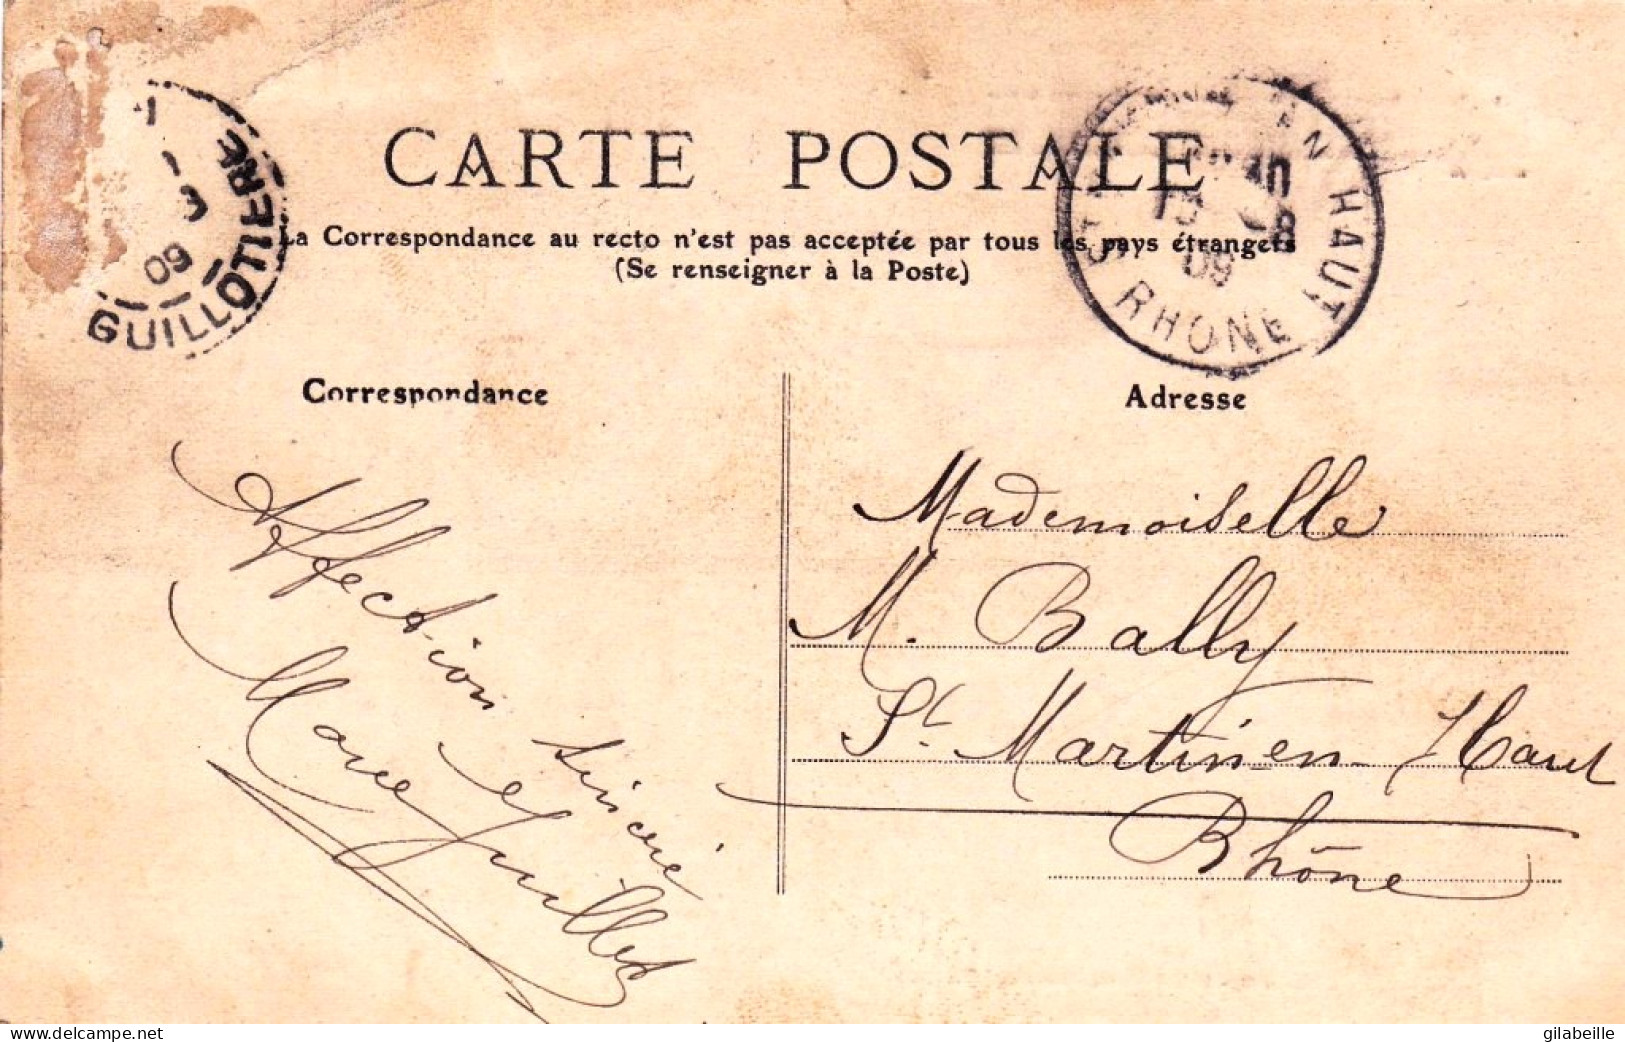 GUILLOTIERE
3
09
CARTE POSTALE
La Correspondance au recto n'est pas acceptée par tous les pays étrangers
(Se renseigner à la Poste)
EN HAUT
RHÔNE
09
Correspondance
Affection sincère
Adresse
Mademoiselle
M. Bally
St. Martin-en-Haut
Rhône
www.delcampe.net
gilabeille